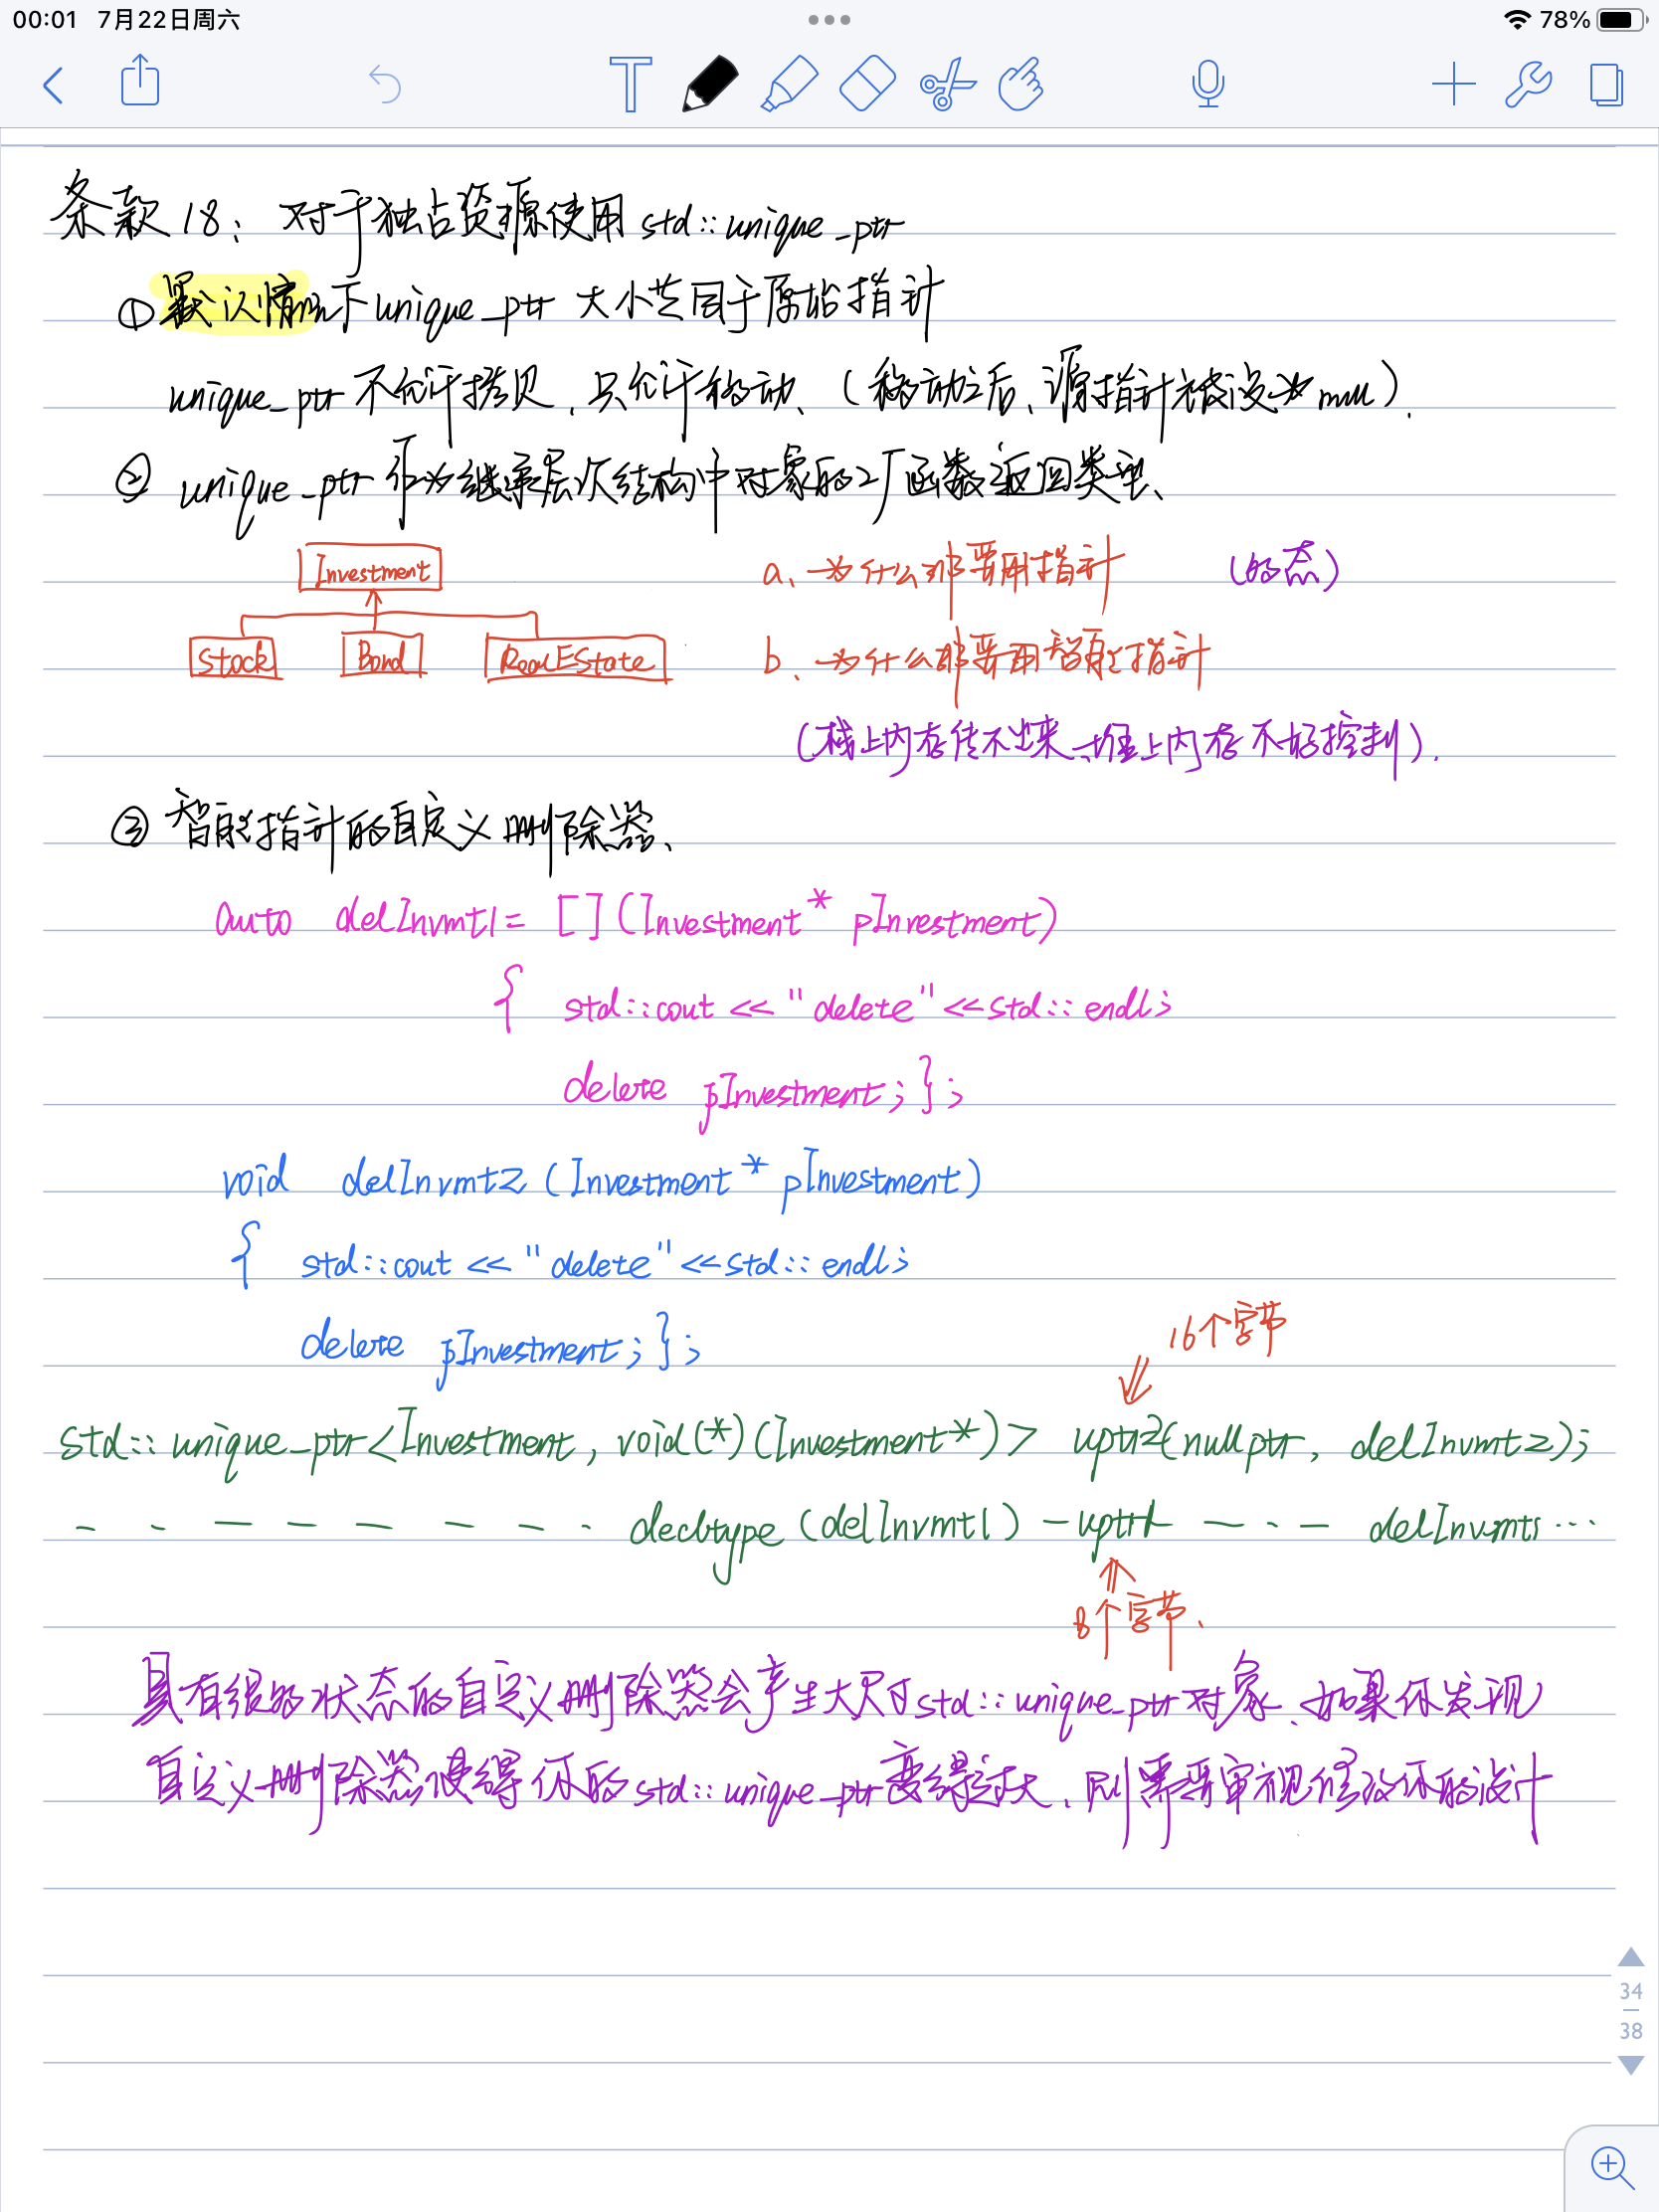 00:01 7月22日周六 78%
条款18: 对于独占资源使用 std::unique_ptr
① 默认情况下unique_ptr 大小等同于原始指针
unique_ptr 不允许拷贝, 只允许移动、(移动之后、源指针被设为 null).
② unique_ptr 作为继承层次结构中对象的工厂函数返回类型、
Investment
a、为什么那要用指针 (多态)
Stock Bond RealEState
b、为什么那要用智能指针
(栈上内存传不出来、堆上内存不好控制).
③ 智能指针的自定义删除器、
auto delInvmt1 = [](Investment* pInvestment)
{ std::cout << "delete" << std::endl;
delete pInvestment; };
void delInvmt2 (Investment* pInvestment)
{ std::cout << "delete" << std::endl;
delete pInvestment; };
16个字节
std::unique_ptr<Investment, void(*)(Investment*)> uptr2(nullptr, delInvmt2);
decltype (delInvmt1) - uptr1 delInvmt1 ...
8个字节.
具有很多状态的自定义删除器会产生大尺寸std::unique_ptr对象、如果你发现
自定义删除器使得你的std::unique_ptr变得过大、则需要审视修改你的设计
34
38